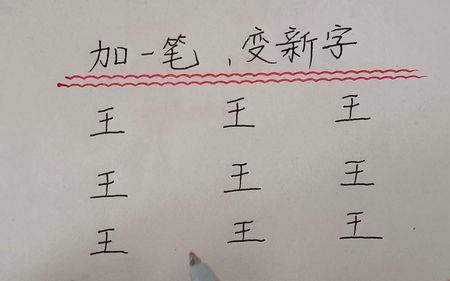 加一笔,变新字
王 王 王
王 王 王
王 王 王